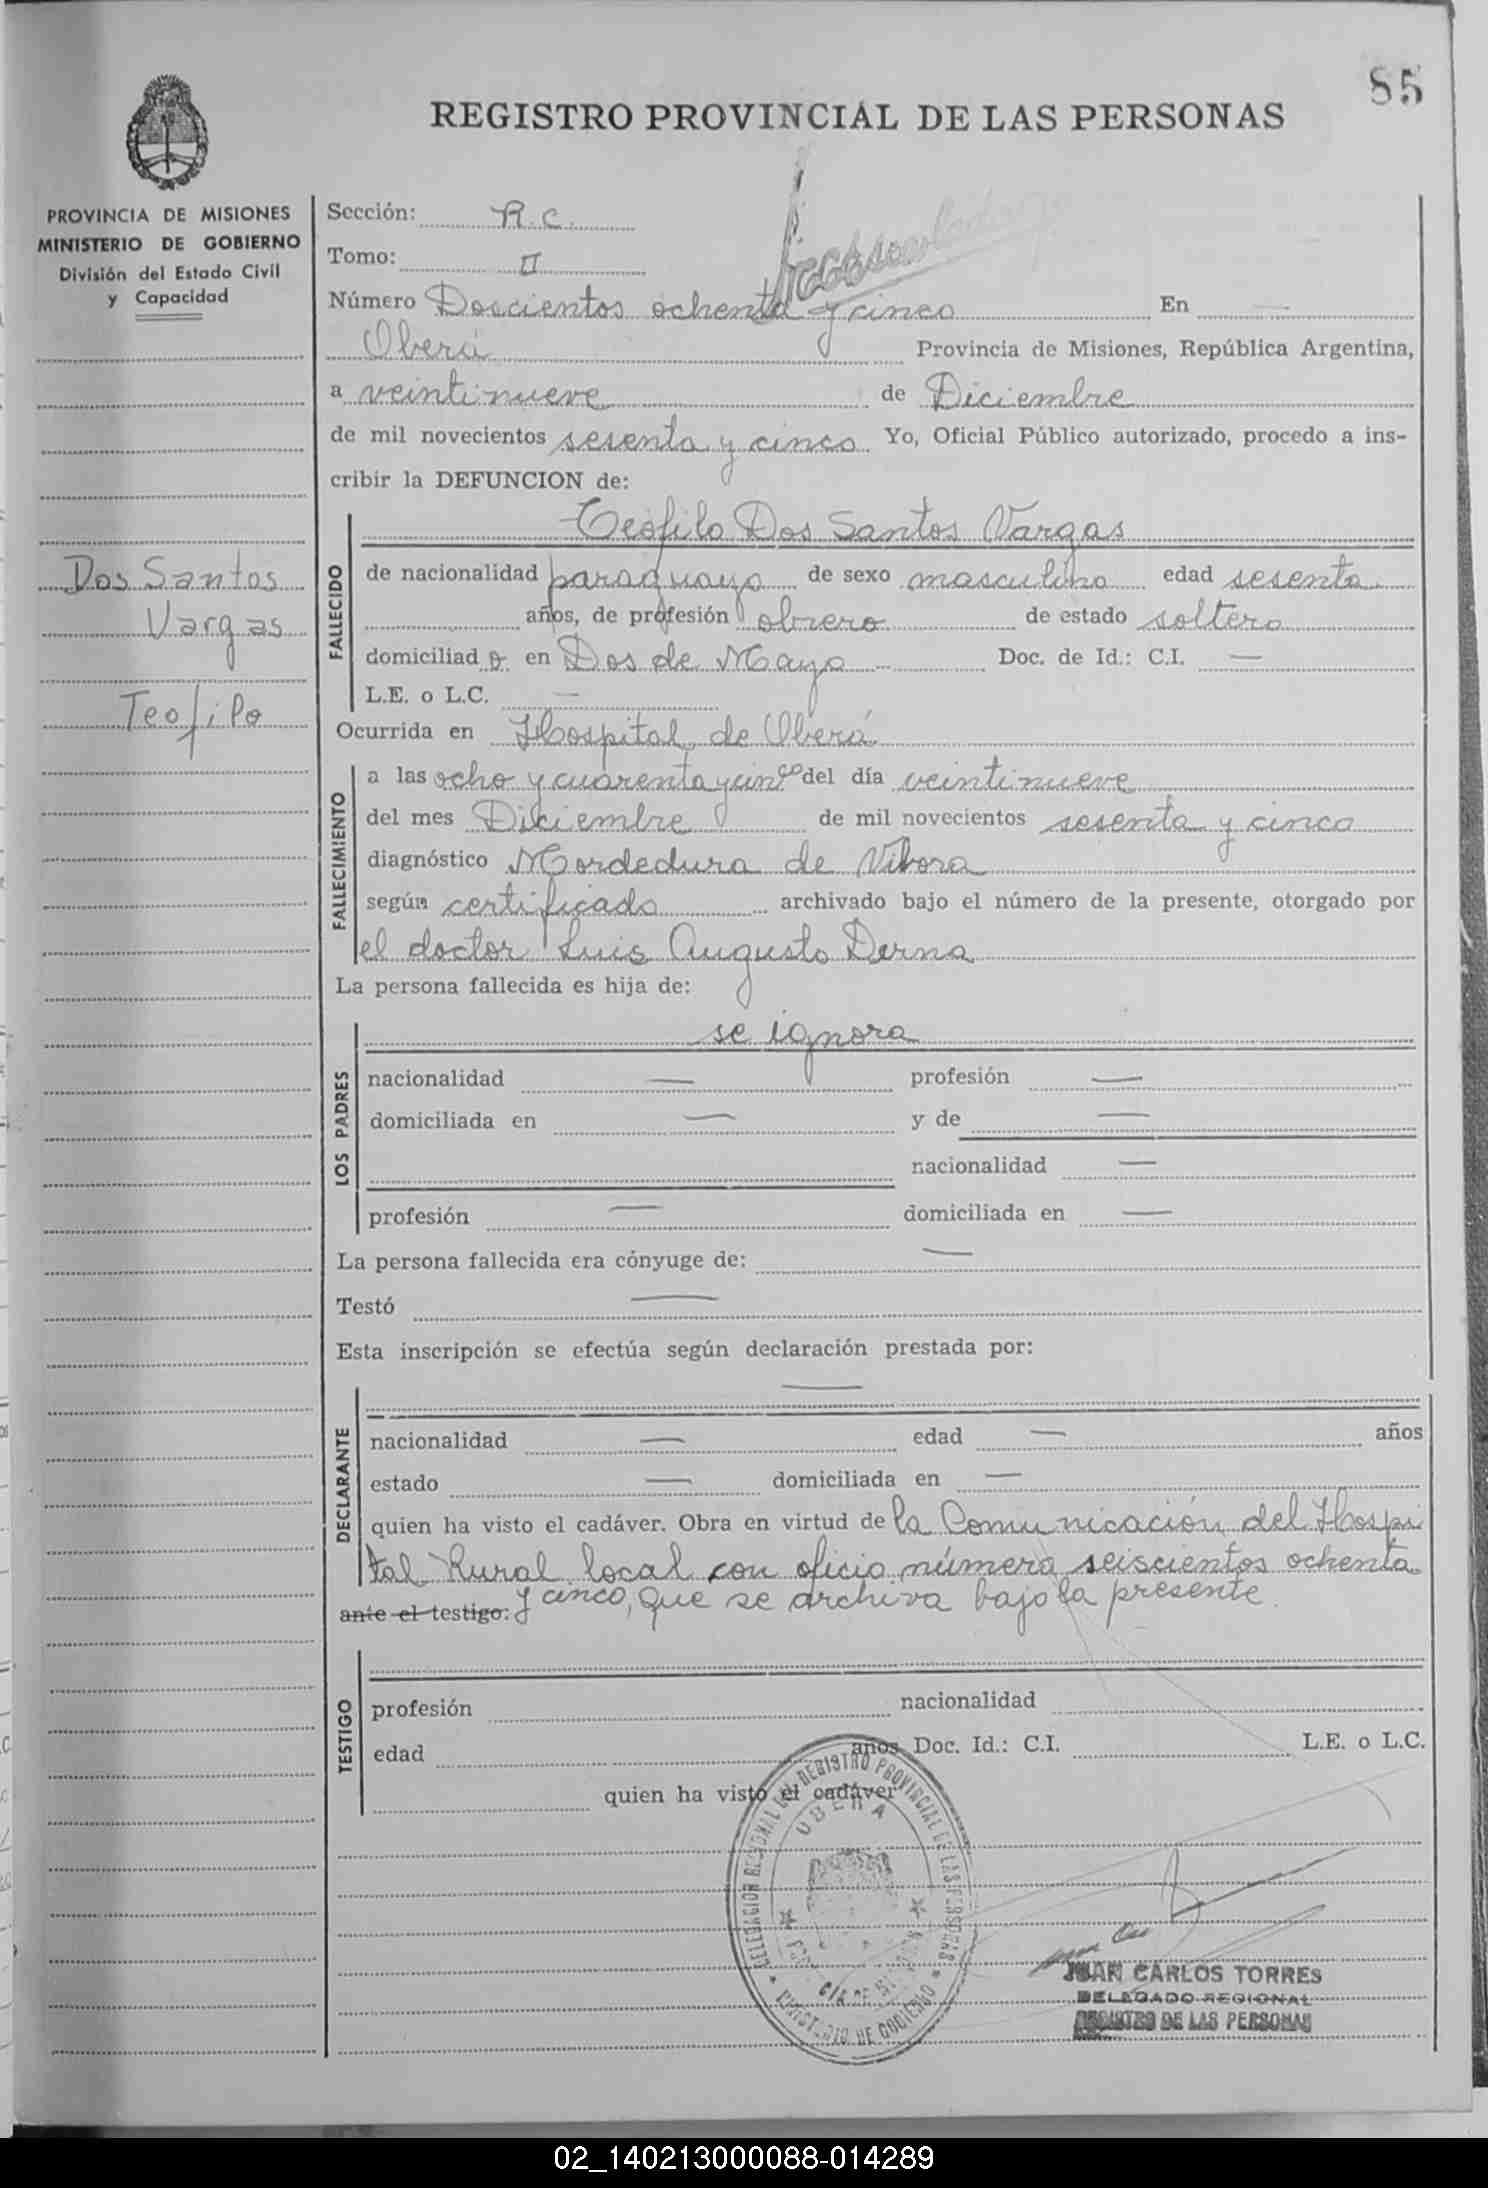 85
REGISTRO PROVINCIAL DE LAS PERSONAS
PROVINCIA DE MISIONES
MINISTERIO DE GOBIERNO
División del Estado Civil
y Capacidad
Dos Santos
Vargas
Teofilo
Sección: R.C.
Tomo: II
Número Doscientos ochenta y cinco En —
Oberá Provincia de Misiones, República Argentina,
a veintinueve de Diciembre
de mil novecientos sesenta y cinco Yo, Oficial Público autorizado, procedo a ins-
cribir la DEFUNCION de:
FALLECIDO
Teófilo Dos Santos Vargas
de nacionalidad paraguayo de sexo masculino edad sesenta
años, de profesión obrero de estado soltero
domiciliado en Dos de Mayo Doc. de Id.: C.I. —
L.E. o L.C. —
Ocurrida en Hospital de Oberá
FALLECIMIENTO
a las ocho y cuarenta y cinco del día veintinueve
del mes Diciembre de mil novecientos sesenta y cinco
diagnóstico Mordedura de Vibora
según certificado archivado bajo el número de la presente, otorgado por
el doctor Luis Augusto Derna
La persona fallecida es hija de:
LOS PADRES
se ignora
nacionalidad — profesión —
domiciliada en — y de —
nacionalidad —
profesión — domiciliada en —
La persona fallecida era cónyuge de: —
Testó —
Esta inscripción se efectúa según declaración prestada por:
DECLARANTE
—
nacionalidad — edad — años
estado — domiciliada en —
quien ha visto el cadáver. Obra en virtud de la Comunicación del Hospi
tal Rural local con oficio número seiscientos ochenta
ante el testigo: y cinco, que se archiva bajo la presente.
TESTIGO
profesión nacionalidad
edad años Doc. Id.: C.I. L.E. o L.C.
quien ha visto el cadáver
DELEGACION REGIONAL DEL REGISTRO PROVINCIAL DE LAS PERSONAS
OBERA
MINISTERIO DE GOBIERNO
JUAN CARLOS TORRES
DELEGADO REGIONAL
REGISTRO DE LAS PERSONAS
02_140213000088-014289